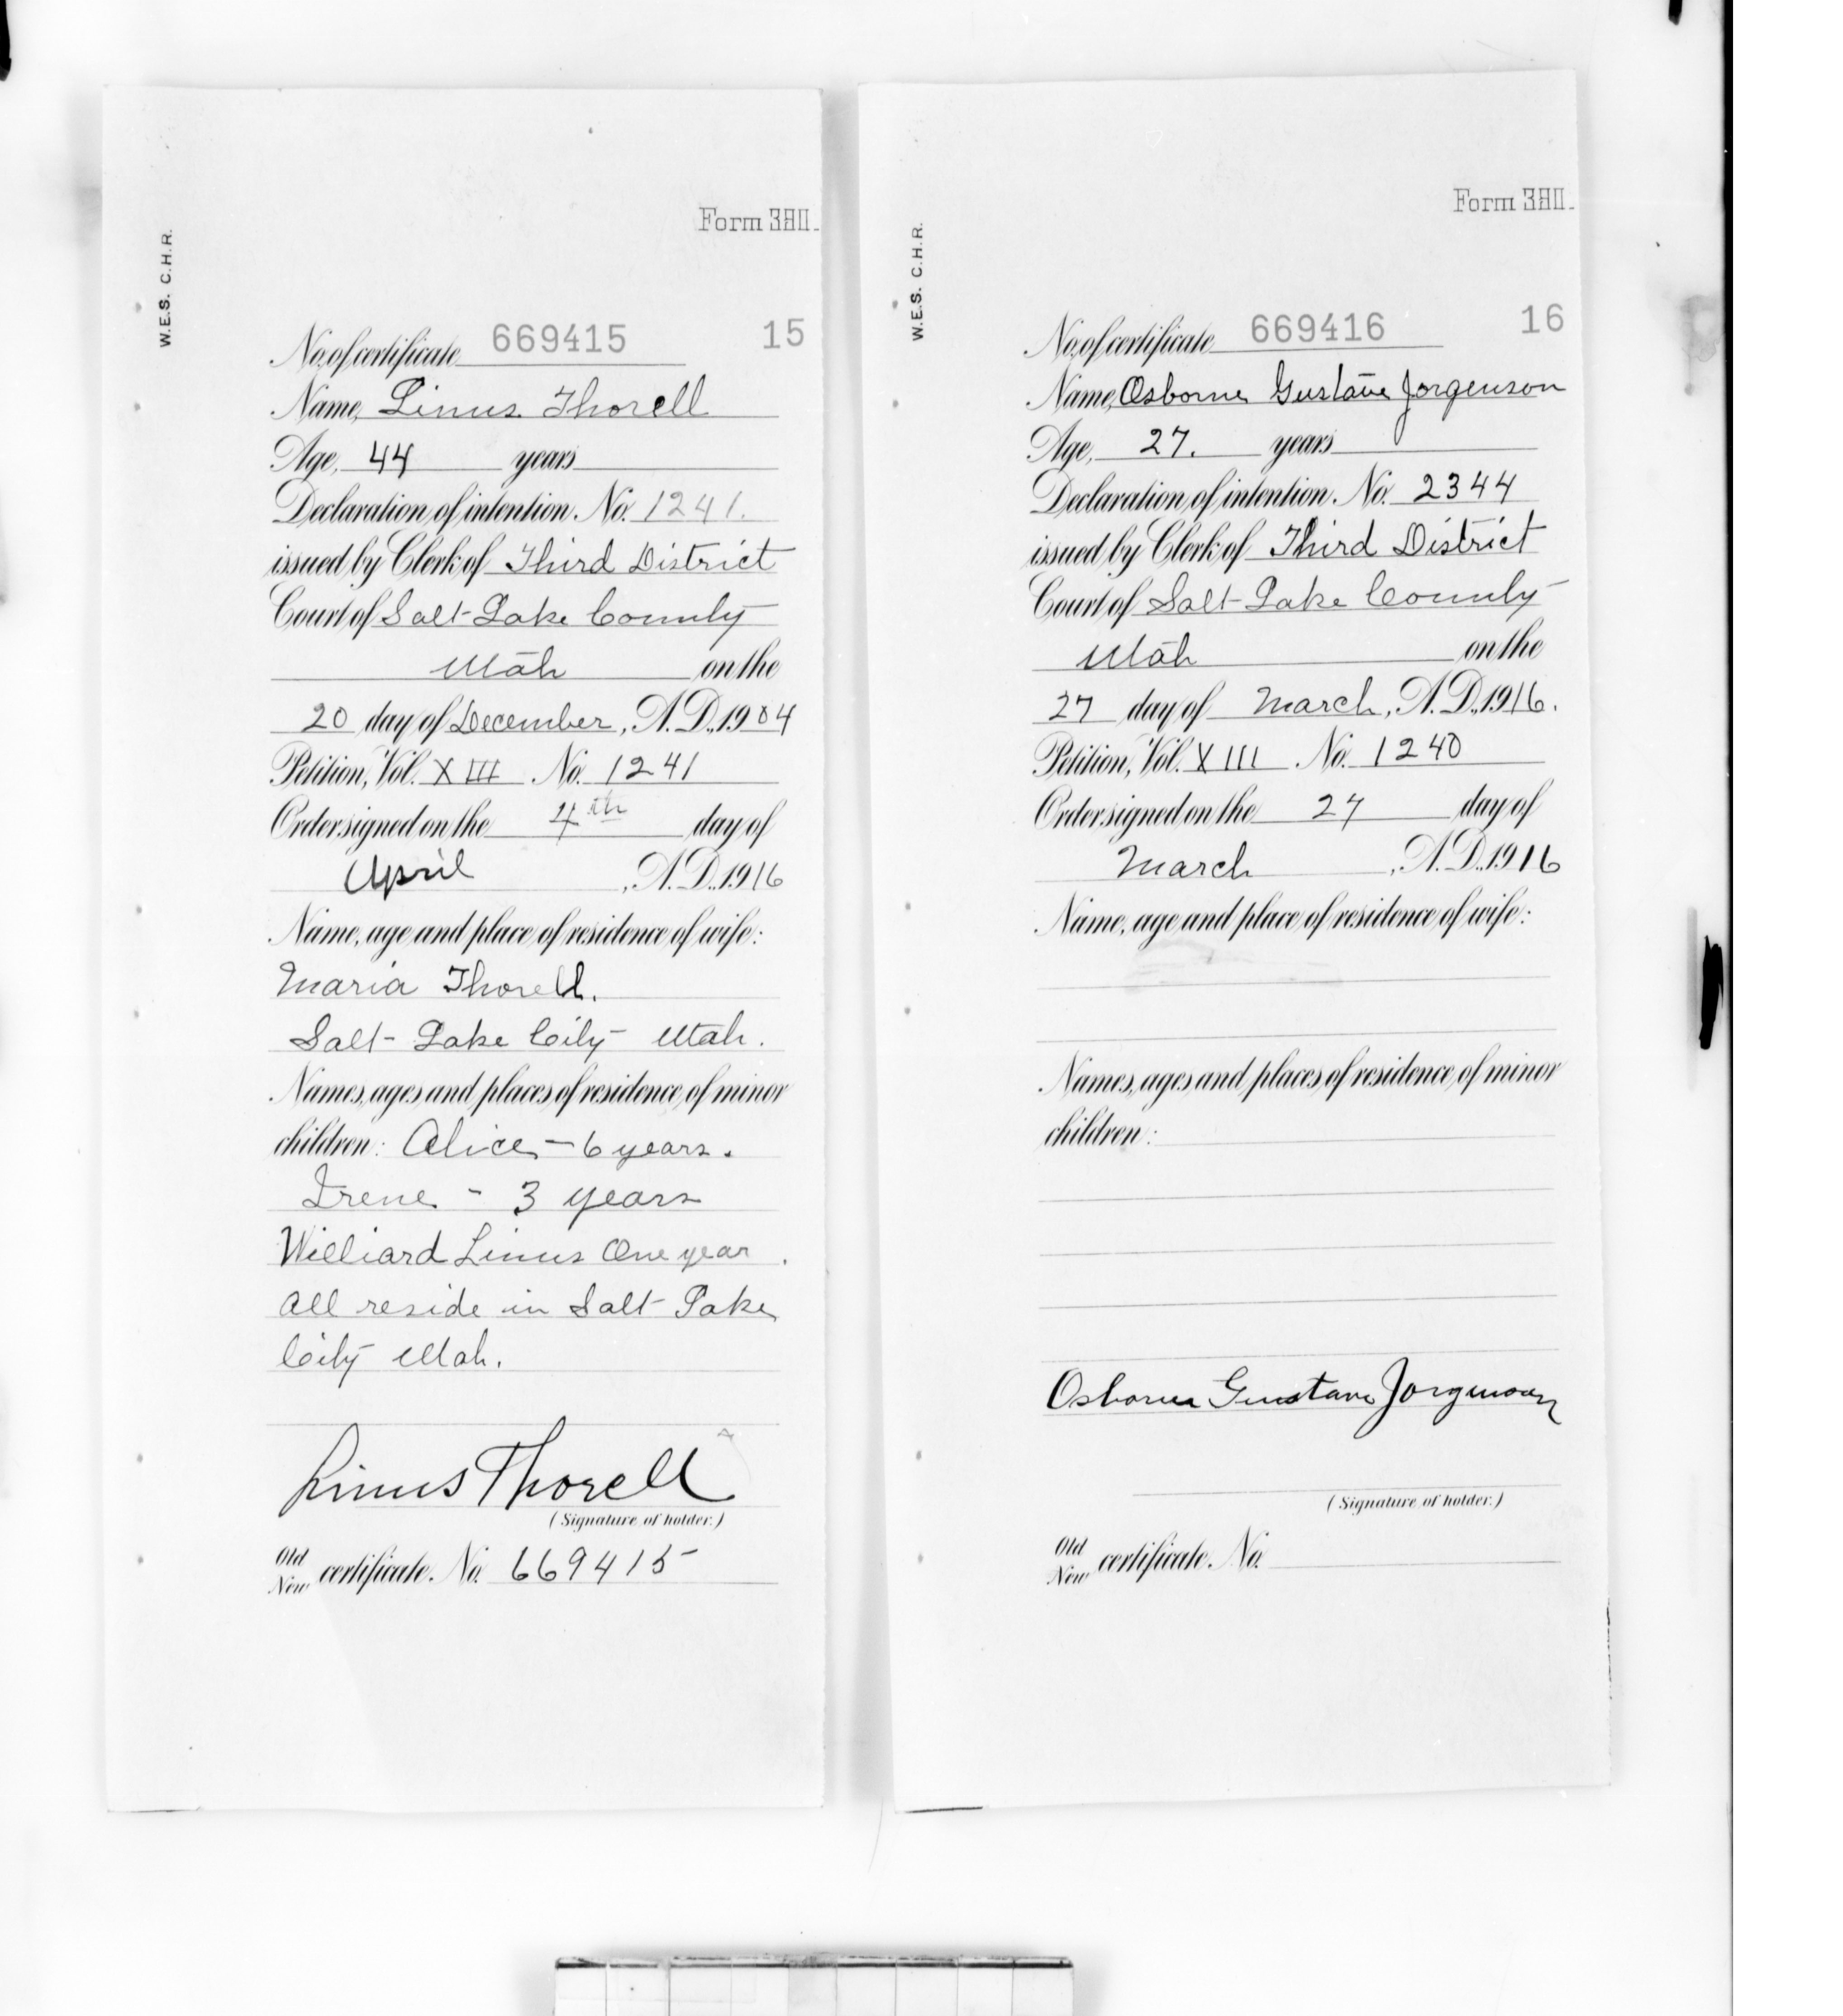 W.E.S. C.H.R.
Form 380.
No. of certificate 669415 15
Name, Linus Thorell
Age, 44 years
Declaration of intention. No. 1241.
issued by Clerk of Third District
Court of Salt Lake County
Utah on the
20 day of December, A.D., 1904
Petition, Vol. XIII No. 1241
Order signed on the 4th day of
April, A.D., 1916
Name, age and place of residence of wife:
Maria Thorell.
Salt Lake City Utah.
Names, ages and places of residence of minor
children: Alice - 6 years.
Irene - 3 years
Williard Linus One year.
All reside in Salt Lake
City Utah.
Linus Thorell
(Signature of holder.)
Old
New certificate. No. 669415
W.E.S. C.H.R.
Form 380.
No. of certificate 669416 16
Name, Osborne Gustave Jorgenson
Age, 27. years
Declaration of intention. No. 2344
issued by Clerk of Third District
Court of Salt Lake County
Utah on the
27 day of March, A.D., 1916.
Petition, Vol. XIII No. 1240
Order signed on the 27 day of
March, A.D., 1916
Name, age and place of residence of wife:
Names, ages and places of residence of minor
children:
Osborne Gustave Jorgenson
(Signature of holder.)
Old
New certificate. No.